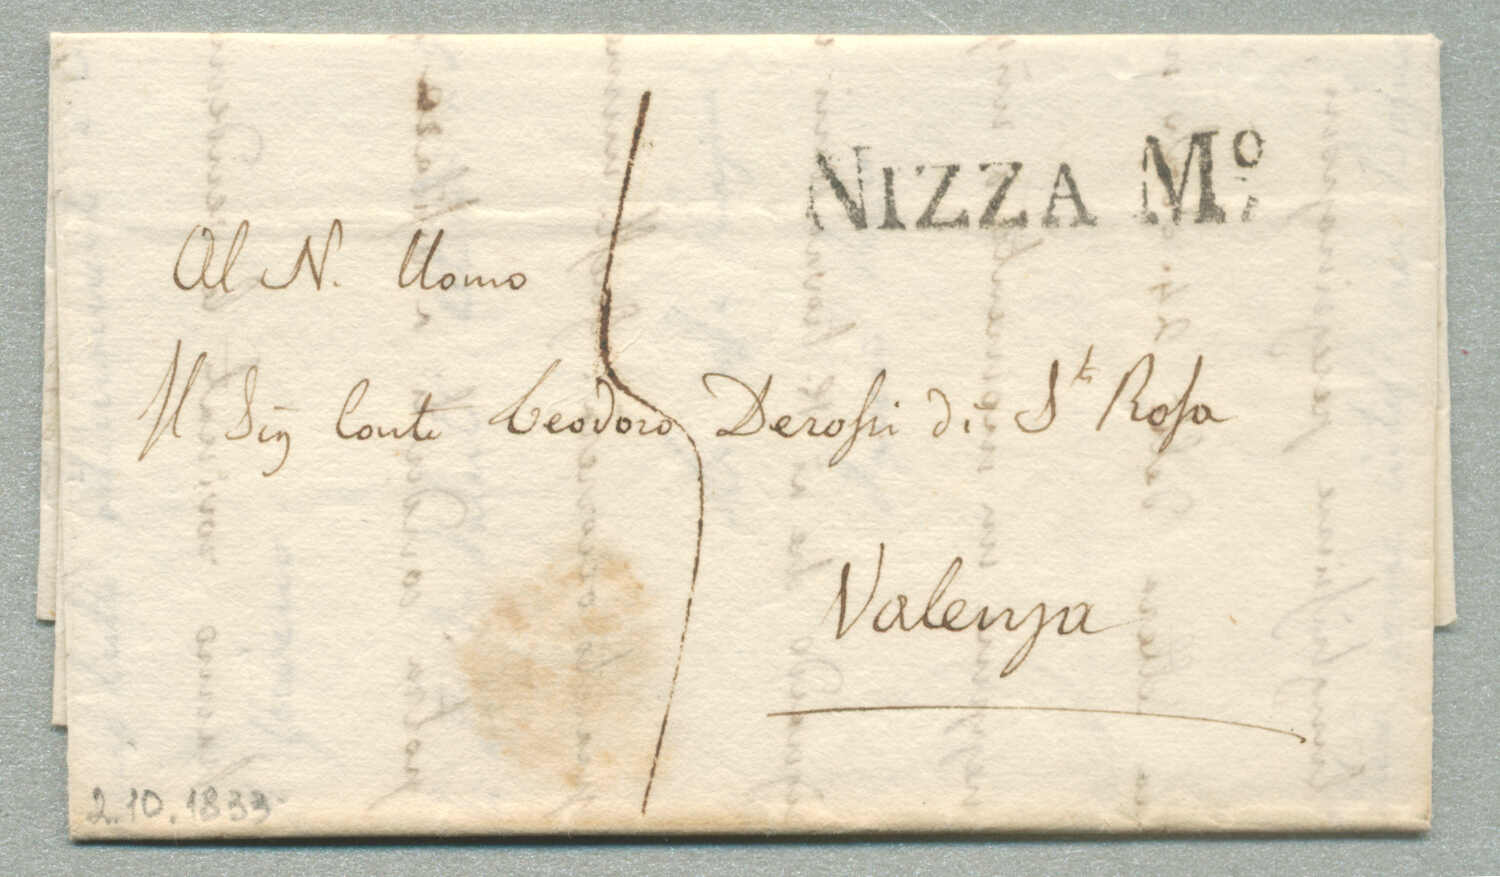 NIZZA Mº
Al N. Uomo
Il Sig Conte Teodoro Derossi di Sta Rosa
Valenza
2.10.1833